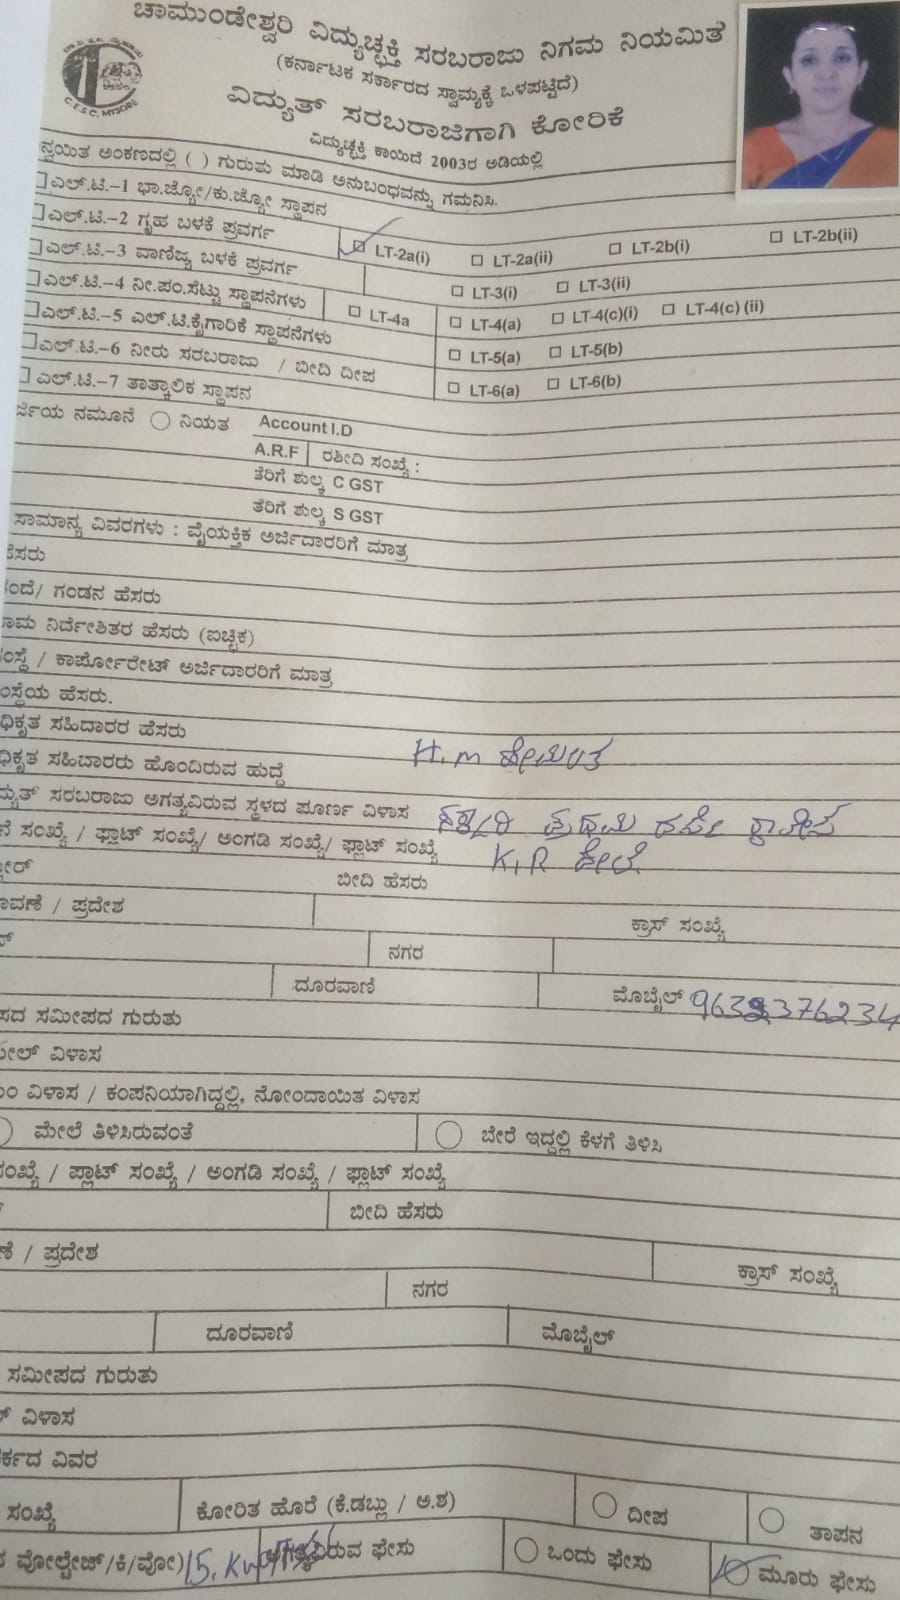 ಚಾಮುಂಡೇಶ್ವರಿ ವಿದ್ಯುಚ್ಛಕ್ತಿ ಸರಬರಾಜು ನಿಗಮ ನಿಯಮಿತ
(ಕರ್ನಾಟಕ ಸರ್ಕಾರದ ಸ್ವಾಮ್ಯಕ್ಕೆ ಒಳಪಟ್ಟಿದೆ)
C.E.S.C, MYSORE
ವಿದ್ಯುತ್ ಸರಬರಾಜಿಗಾಗಿ ಕೋರಿಕೆ
ವಿದ್ಯುಚ್ಛಕ್ತಿ ಕಾಯಿದೆ 2003ರ ಅಡಿಯಲ್ಲಿ
ನ್ವಯಿತ ಅಂಕಣದಲ್ಲಿ ( ) ಗುರುತು ಮಾಡಿ ಅನುಬಂಧವನ್ನು ಗಮನಿಸಿ.
ಎಲ್.ಟಿ.-1 ಭಾ.ಜ್ಯೋ/ಕು.ಜ್ಯೋ ಸ್ಥಾಪನ
ಎಲ್.ಟಿ.-2 ಗೃಹ ಬಳಕೆ ಪ್ರವರ್ಗ LT-2a(i) LT-2a(ii) LT-2b(i) LT-2b(ii)
ಎಲ್.ಟಿ.-3 ವಾಣಿಜ್ಯ ಬಳಕೆ ಪ್ರವರ್ಗ LT-3(i) LT-3(ii)
ಎಲ್.ಟಿ.-4 ನೀ.ಪಂ.ಸೆಟ್ಟು ಸ್ಥಾಪನೆಗಳು LT-4a LT-4(a) LT-4(c)(i) LT-4(c) (ii)
ಎಲ್.ಟಿ.-5 ಎಲ್.ಟಿ.ಕೈಗಾರಿಕೆ ಸ್ಥಾಪನೆಗಳು LT-5(a) LT-5(b)
ಎಲ್.ಟಿ.-6 ನೀರು ಸರಬರಾಜು / ಬೀದಿ ದೀಪ LT-6(a) LT-6(b)
ಎಲ್.ಟಿ.-7 ತಾತ್ಕಾಲಿಕ ಸ್ಥಾಪನ
ರ್ಜಿಯ ನಮೂನೆ ನಿಯತ Account I.D
A.R.F ರಶೀದಿ ಸಂಖ್ಯೆ :
ತೆರಿಗೆ ಶುಲ್ಕ C GST
ತೆರಿಗೆ ಶುಲ್ಕ S GST
ಸಾಮಾನ್ಯ ವಿವರಗಳು : ವೈಯಕ್ತಿಕ ಅರ್ಜಿದಾರರಿಗೆ ಮಾತ್ರ
ಹೆಸರು
ಂದೆ/ ಗಂಡನ ಹೆಸರು
ಾಮ ನಿರ್ದೇಶಿತರ ಹೆಸರು (ಐಚ್ಛಿಕ)
ಂಸ್ಥೆ / ಕಾರ್ಪೋರೇಟ್ ಅರ್ಜಿದಾರರಿಗೆ ಮಾತ್ರ
ಂಸ್ಥೆಯ ಹೆಸರು.
ಧಿಕೃತ ಸಹಿದಾರರ ಹೆಸರು
ಧಿಕೃತ ಸಹಿದಾರರು ಹೊಂದಿರುವ ಹುದ್ದೆ H.m ಹೇಮಂತ
ದ್ಯುತ್ ಸರಬರಾಜು ಅಗತ್ಯವಿರುವ ಸ್ಥಳದ ಪೂರ್ಣ ವಿಳಾಸ ಪ್ರಥಮ ದರ್ಜೆ
ನೆ ಸಂಖ್ಯೆ / ಪ್ಲಾಟ್ ಸಂಖ್ಯೆ/ ಅಂಗಡಿ ಸಂಖ್ಯೆ/ ಫ್ಲಾಟ್ ಸಂಖ್ಯೆ K.R ಪೇಟೆ
ಬೀದಿ ಹೆಸರು
ಾವಣೆ / ಪ್ರದೇಶ ಕ್ರಾಸ್ ಸಂಖ್ಯೆ
ನಗರ
ದೂರವಾಣಿ ಮೊಬೈಲ್
ಸದ ಸಮೀಪದ ಗುರುತು
ಮೇಲ್ ವಿಳಾಸ
ಂ ವಿಳಾಸ / ಕಂಪನಿಯಾಗಿದ್ದಲ್ಲಿ, ನೋಂದಾಯಿತ ವಿಳಾಸ
ಮೇಲೆ ತಿಳಿಸಿರುವಂತೆ ಬೇರೆ ಇದ್ದಲ್ಲಿ ಕೆಳಗೆ ತಿಳಿಸಿ
ಸಂಖ್ಯೆ / ಪ್ಲಾಟ್ ಸಂಖ್ಯೆ / ಅಂಗಡಿ ಸಂಖ್ಯೆ / ಫ್ಲಾಟ್ ಸಂಖ್ಯೆ
ಬೀದಿ ಹೆಸರು
ಣೆ / ಪ್ರದೇಶ ಕ್ರಾಸ್ ಸಂಖ್ಯೆ
ನಗರ
ದೂರವಾಣಿ ಮೊಬೈಲ್
ಸಮೀಪದ ಗುರುತು
ಲ್ ವಿಳಾಸ
ರ್ಕದ ವಿವರ
ಸಂಖ್ಯೆ ಕೋರಿತ ಹೊರೆ (ಕೆ.ಡಬ್ಲು / ಅ.ಶ) ದೀಪ ತಾಪನ
ವೋಲ್ಟೇಜ್/ಕಿ/ವೋ) 15. Kw ಅಗತ್ಯವಿರುವ ಫೇಸು ಒಂದು ಫೇಸು ಮೂರು ಫೇಸು